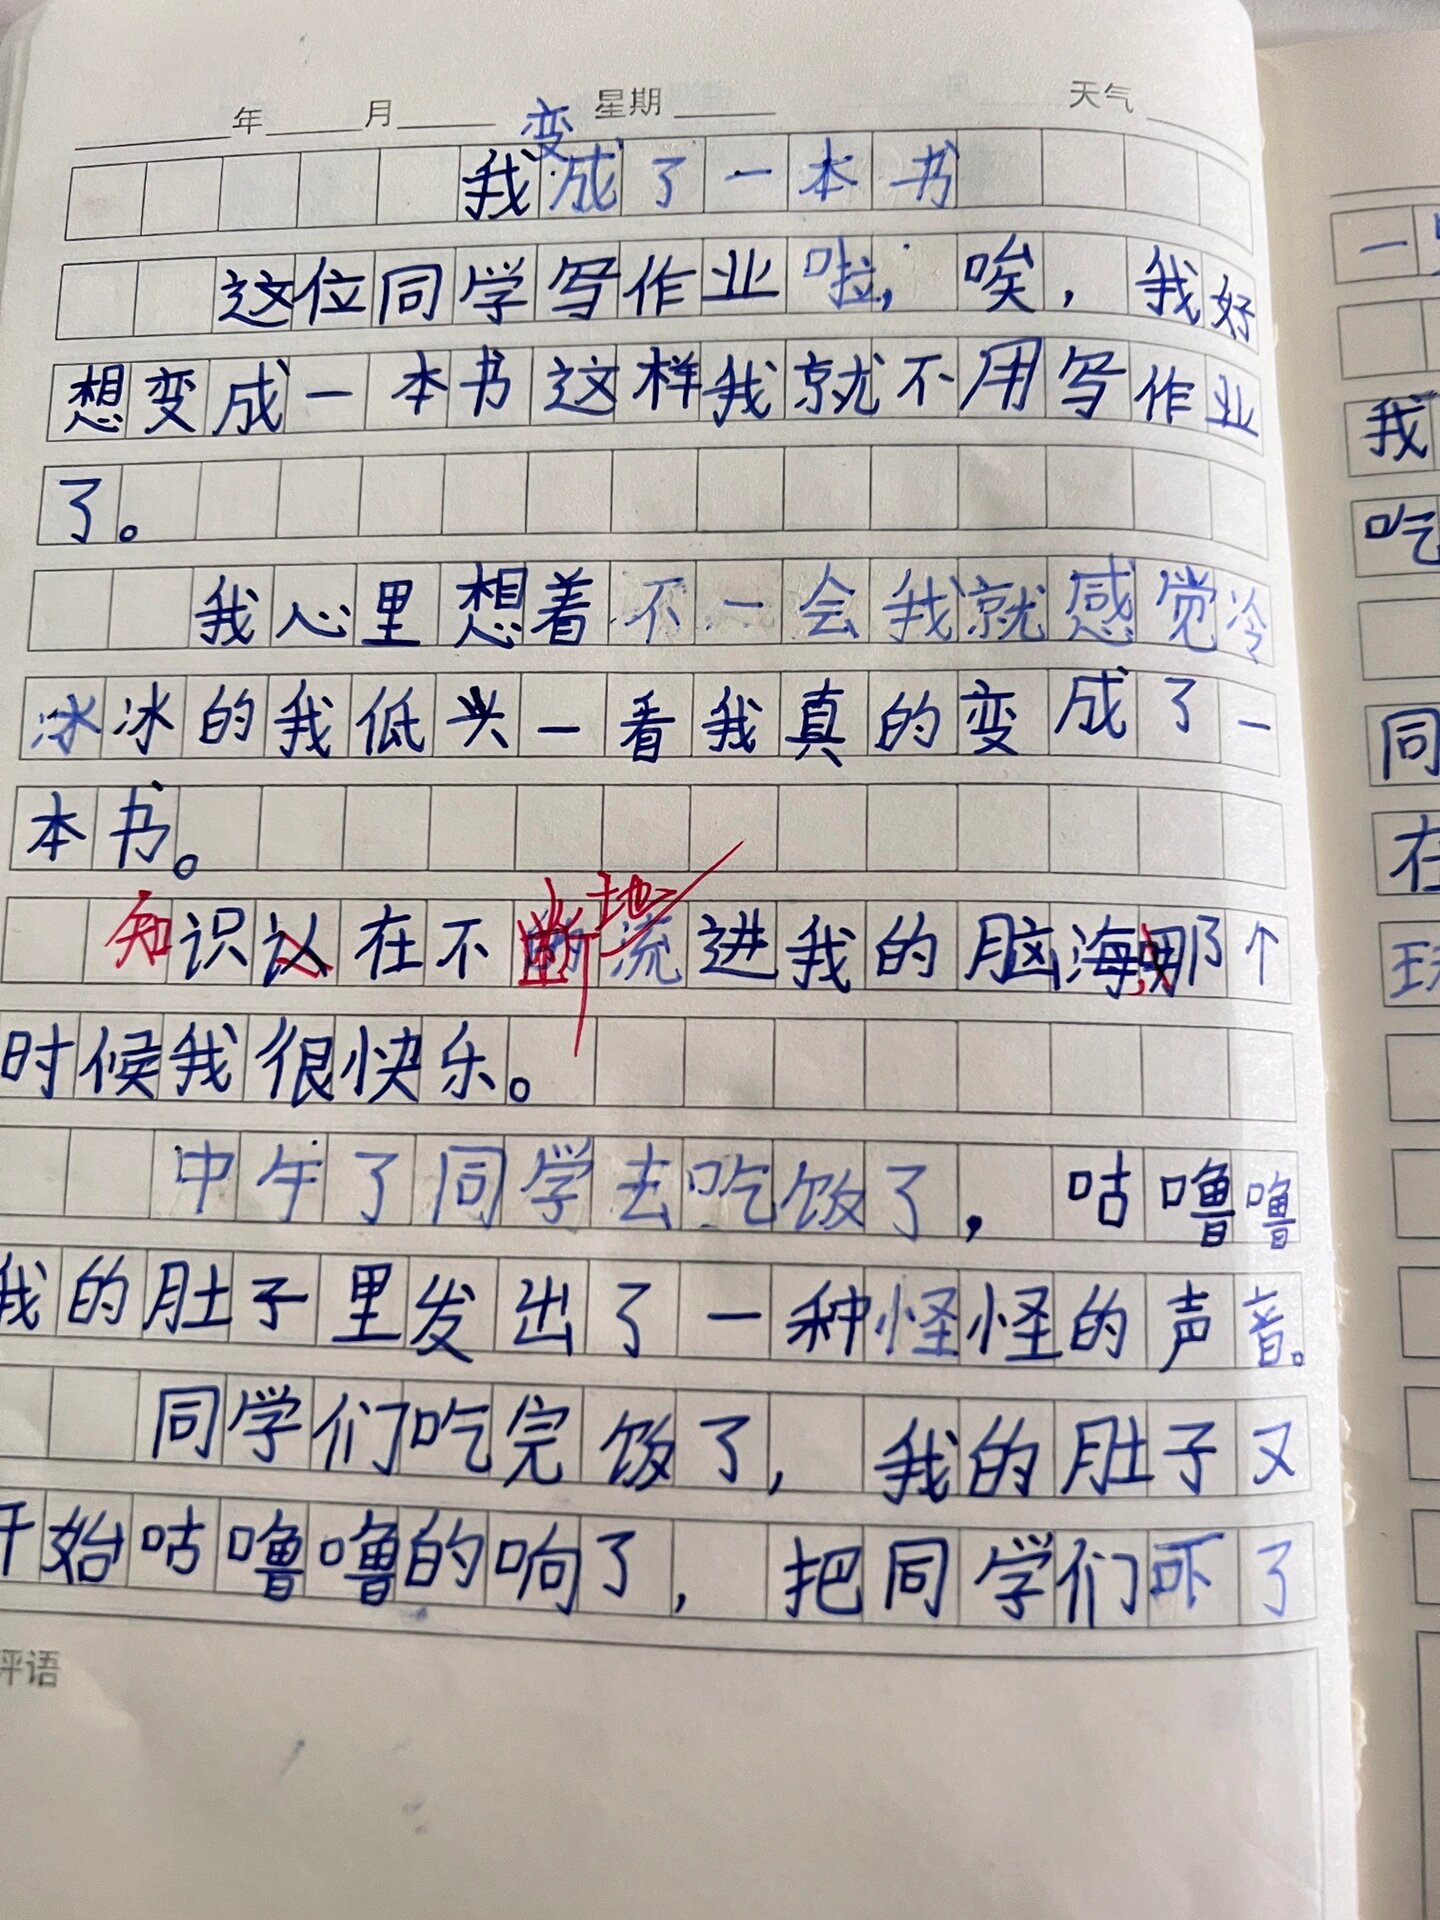 年 月 星期 天气
变
我成了一本书
这位同学写作业啦，唉，我好
想变成一本书这样我就不用写作业
了。
我心里想着不一会我就感觉冷
冰冰的我低头一看我真的变成了一
本书。
地
知识认在不断流进我的脑海哪个
时候我很快乐。
中午了同学去吃饭了，咕噜噜
我的肚子里发出了一种怪怪的声音。
同学们吃完饭了，我的肚子又
开始咕噜噜的响了，把同学们吓了
评语
一
我
吃
同
在